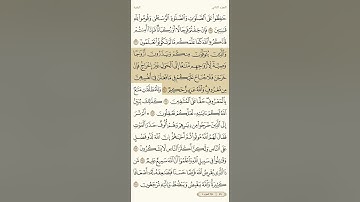 الجزء الثاني البقرة
حَٰفِظُوا۟ عَلَى ٱلصَّلَوَٰتِ وَٱلصَّلَوٰةِ ٱلْوُسْطَىٰ وَقُومُوا۟ لِلَّهِ
قَٰنِتِينَ ۝ فَإِنْ خِفْتُمْ فَرِجَالًا أَوْ رُكْبَانًا فَإِذَآ أَمِنتُمْ
فَٱذْكُرُوا۟ ٱللَّهَ كَمَا عَلَّمَكُم مَّا لَمْ تَكُونُوا۟ تَعْلَمُونَ ۝
وَٱلَّذِينَ يُتَوَفَّوْنَ مِنكُمْ وَيَذَرُونَ أَزْوَٰجًا
وَصِيَّةً لِّأَزْوَٰجِهِم مَّتَٰعًا إِلَى ٱلْحَوْلِ غَيْرَ إِخْرَاجٍ فَإِنْ
خَرَجْنَ فَلَا جُنَاحَ عَلَيْكُمْ فِى مَا فَعَلْنَ فِىٓ أَنفُسِهِنَّ
مِن مَّعْرُوفٍ وَٱللَّهُ عَزِيزٌ حَكِيمٌ ۝ وَلِلْمُطَلَّقَٰتِ مَتَٰعٌۢ
بِٱلْمَعْرُوفِ حَقًّا عَلَى ٱلْمُتَّقِينَ ۝ كَذَٰلِكَ يُبَيِّنُ
ٱللَّهُ لَكُمْ ءَايَٰتِهِۦ لَعَلَّكُمْ تَعْقِلُونَ ۝ أَلَمْ تَرَ
إِلَى ٱلَّذِينَ خَرَجُوا۟ مِن دِيَٰرِهِمْ وَهُمْ أُلُوفٌ حَذَرَ ٱلْمَوْتِ
فَقَالَ لَهُمُ ٱللَّهُ مُوتُوا۟ ثُمَّ أَحْيَٰهُمْ إِنَّ ٱللَّهَ لَذُو فَضْلٍ
عَلَى ٱلنَّاسِ وَلَٰكِنَّ أَكْثَرَ ٱلنَّاسِ لَا يَشْكُرُونَ ۝
وَقَٰتِلُوا۟ فِى سَبِيلِ ٱللَّهِ وَٱعْلَمُوٓا۟ أَنَّ ٱللَّهَ سَمِيعٌ عَلِيمٌ ۝
مَّن ذَا ٱلَّذِى يُقْرِضُ ٱللَّهَ قَرْضًا حَسَنًا فَيُضَٰعِفَهُۥ لَهُۥٓ أَضْعَافًا
كَثِيرَةً وَٱللَّهُ يَقْبِضُ وَيَبْصُۜطُ وَإِلَيْهِ تُرْجَعُونَ ۝